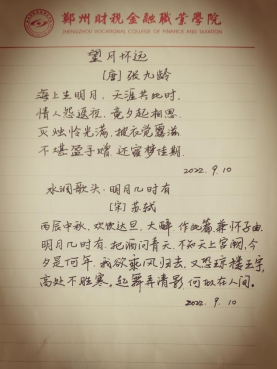 郑州财税金融职业学院
ZHENGZHOU VOCATIONAL COLLEGE OF FINANCE AND TAXATION
望月怀远
[唐]张九龄
海上生明月，天涯共此时.
情人怨遥夜，竟夕起相思.
灭烛怜光满，披衣觉露滋.
不堪盈手赠，还寝梦佳期.
2022.9.10
水调歌头·明月几时有
[宋]苏轼
丙辰中秋，欢饮达旦，大醉，作此篇，兼怀子由.
明月几时有，把酒问青天，不知天上宫阙，今
夕是何年，我欲乘风归去，又恐琼楼玉宇，
高处不胜寒。起舞弄清影，何似在人间。
2022.9.10